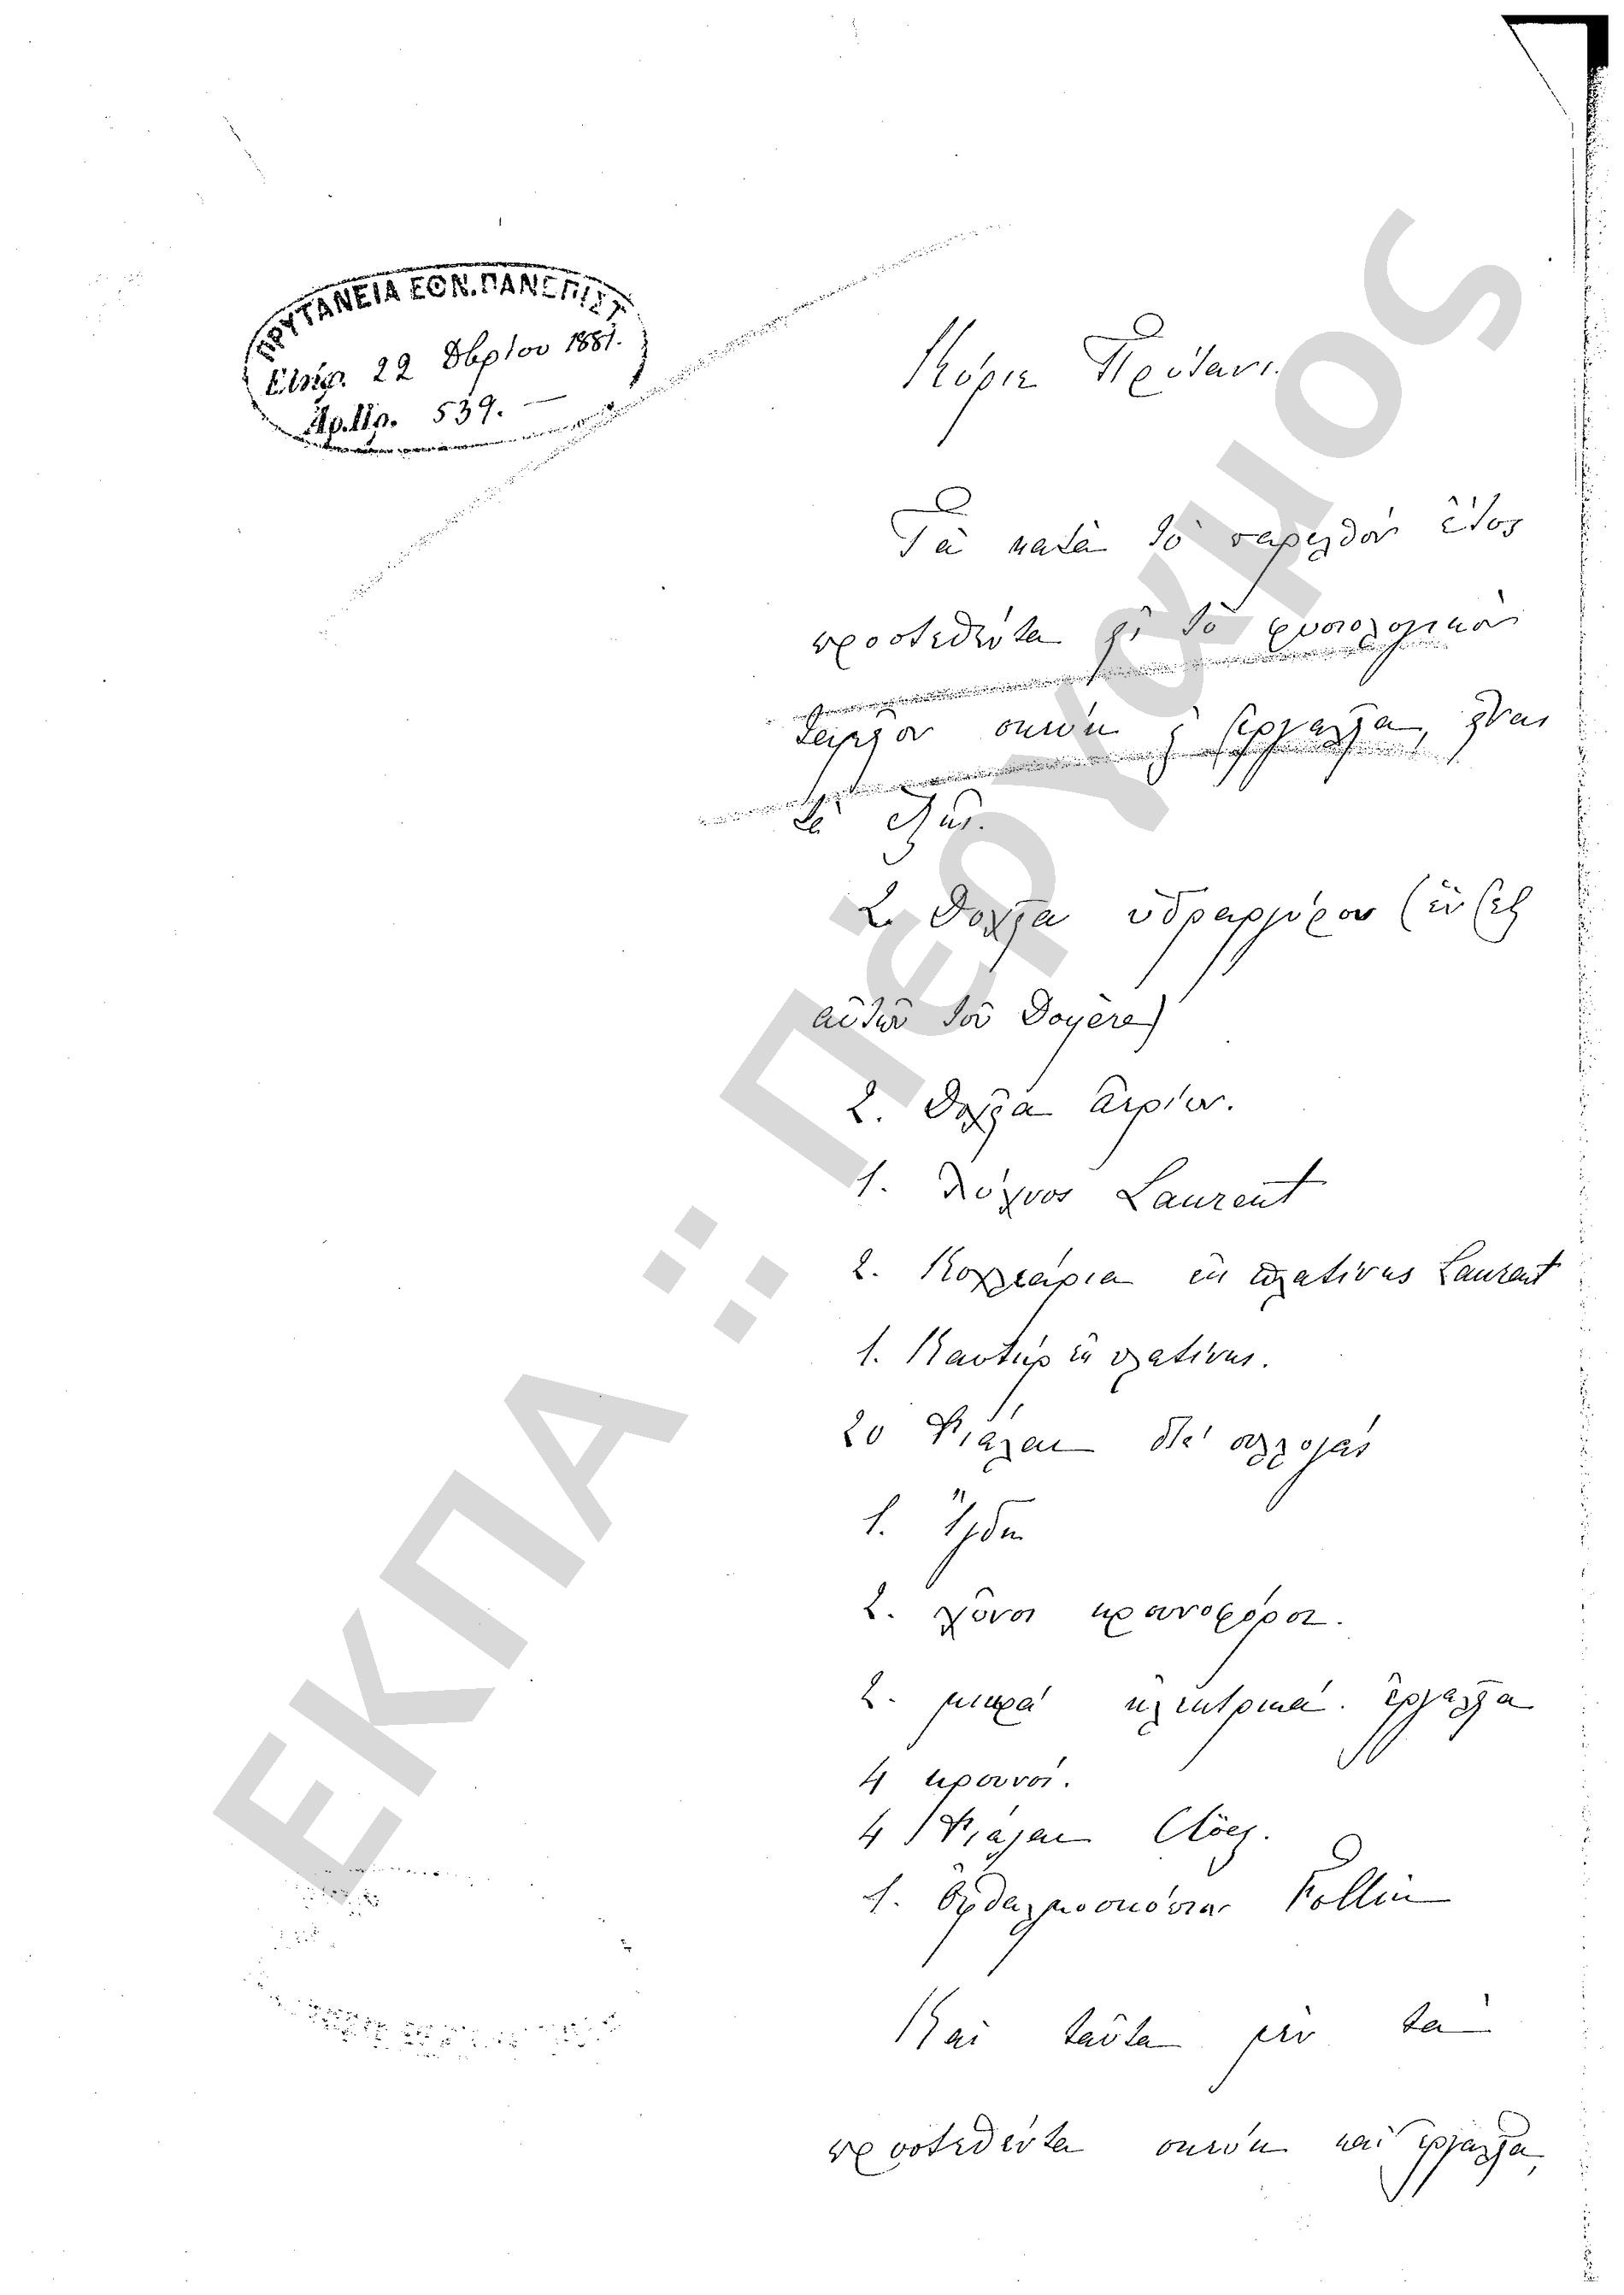 ΠΡΥΤΑΝΕΙΑ ΕΘΝ. ΠΑΝΕΠΙΣΤ
Εἰσήχ. 22 Δβρίου 1881.
Ἀρ. Πρ. 539. —
Κύριε Πρύτανι.
Τὰ κατὰ τὸ παρελθὸν ἔτος
προστεθέντα εἰς τὸ φυσιολογικὸν
σκεύη ἢ ἐργαλεῖα, εἶναι
τὰ ἑξῆς.
2. Δοχεῖα ὑδραργύρου (ἓν ἐξ
αὐτῶν τοῦ Doyère)
2. Δοχεῖα ἀερίων.
1. Λύχνος Laurent
2. Κοχλιάρια ἐκ πλατίνης Laurent
1. Καυτὴρ ἐκ πλατίνης.
20 Φιάλαι διὰ συλλογάς
1. Ἴγδη
2. χῶνοι κρουνοφόροι.
2. μικρά ἠλεκτρικά ἐργαλεῖα
4 κρουνοί.
4 Φιάλαι
1. Ὀφθαλμοσκόπιον Follin
Καὶ ταῦτα μὲν τὰ
προστεθέντα σκεύη καὶ ἐργαλεῖα,
ΕΚΠΑ :: Πέργαμος